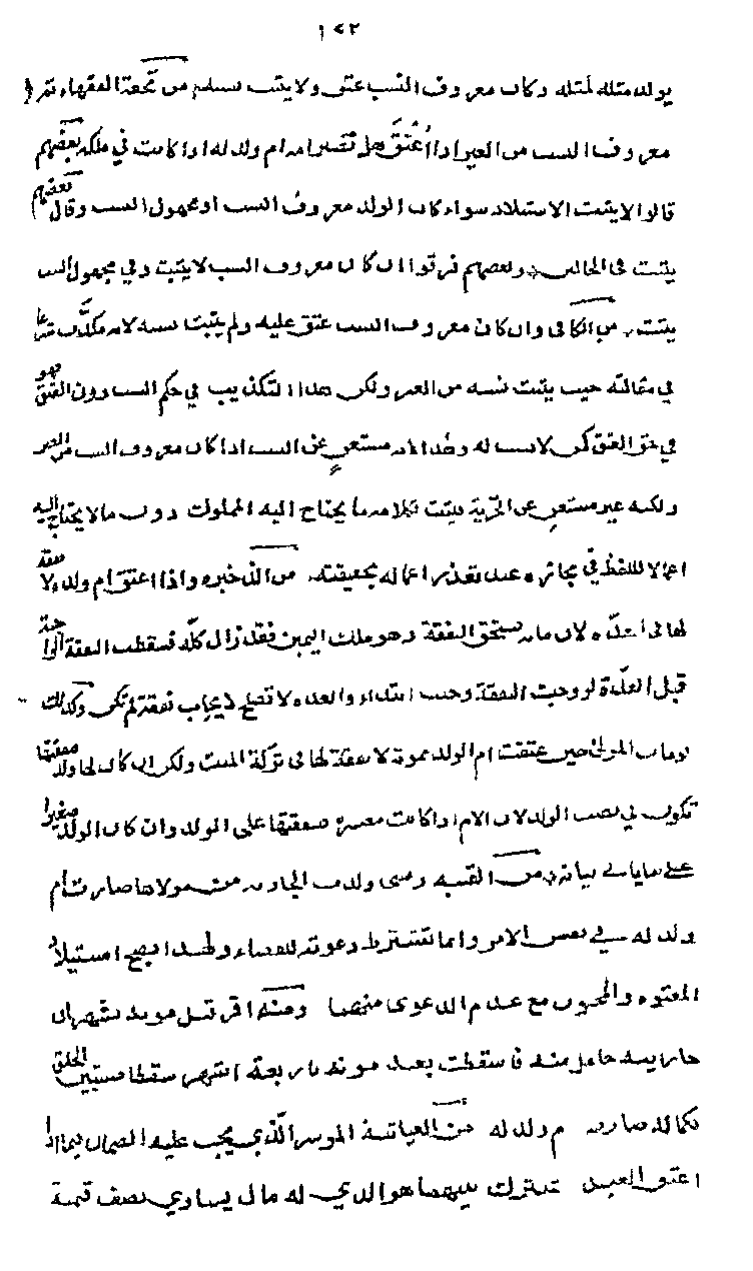 ١٧٢
يولد مثله لمثله وكان معروف النسب عتق ولا يثبت نسبه من تحفة الفقهاء ثم
معروف النسب من الغير اذا أعتق هل تصير امه ام ولد له اذا كانت في ملكه بعضهم
قالوا لا يثبت الاستيلاد سواء كان الولد معروف النسب او مجهول النسب وقال بعضهم
يثبت في الحالين وبعضهم فرقوا ان كان معروف النسب لا يثبت وفي مجهول النسب
يثبت من الكافى وان كان معروف النسب عتق عليه ولم يثبت نسبه لانه مكذب شرعا
في مقالته حيث يثبت نسبه من الغير ولكن هذا التكذيب في حكم النسب دون العتق فهو
في حق العتق كمن لا نسب له وهذا لانه مستغن عن النسب اذا كان معروف النسب من الغير
ولكنه غير مستغن عن الحرية فيثبت بكلامه ما يحتاج اليه المملوك دون ما لا يحتاج اليه
اعمالا للفظ في مجازه عند تعذر اعماله بحقيقته من الذخيره واذا اعتق ام ولده لا نفقة
لها في العدة لان ما به تستحق النفقة وهو ملك اليمين فقد زال كله فسقطت النفقة الواجبة
قبل العدة لو وجبت النفقة وجبت ابتداء والعده لا تصلح لايجاب نفقة لم تكن وكذلك
لو مات المولى حين عتقت ام الولد بموته لا نفقة لها في تركة الميت ولكن ان كان لها ولد نفقتها
تكون في نصيب الولد لان الام اذا كانت معسرة نفقتها على الولد وان كان الولد صغيرا
على ما ياتى بيانه من القنيه ومتى ولدت الجارية من مولاها صارت أم
ولد له في نفس الامر وانما تشترط دعوته للقضاء ولهذا يصح استيلاد
المعتوه والمجنون مع عدم الدعوى منهما ومنه اقر قبل موته بشهر ان
جاريته حامل منه فاسقطت بعد موته باربعة اشهر سقطا مستبين الخلق
بكماله صارت ام ولد له من العتابية الموسر الذي يجب عليه الضمان فيما اذا
اعتق العبد المشترك بينهما هو الذي له مال يساوي نصف قيمة